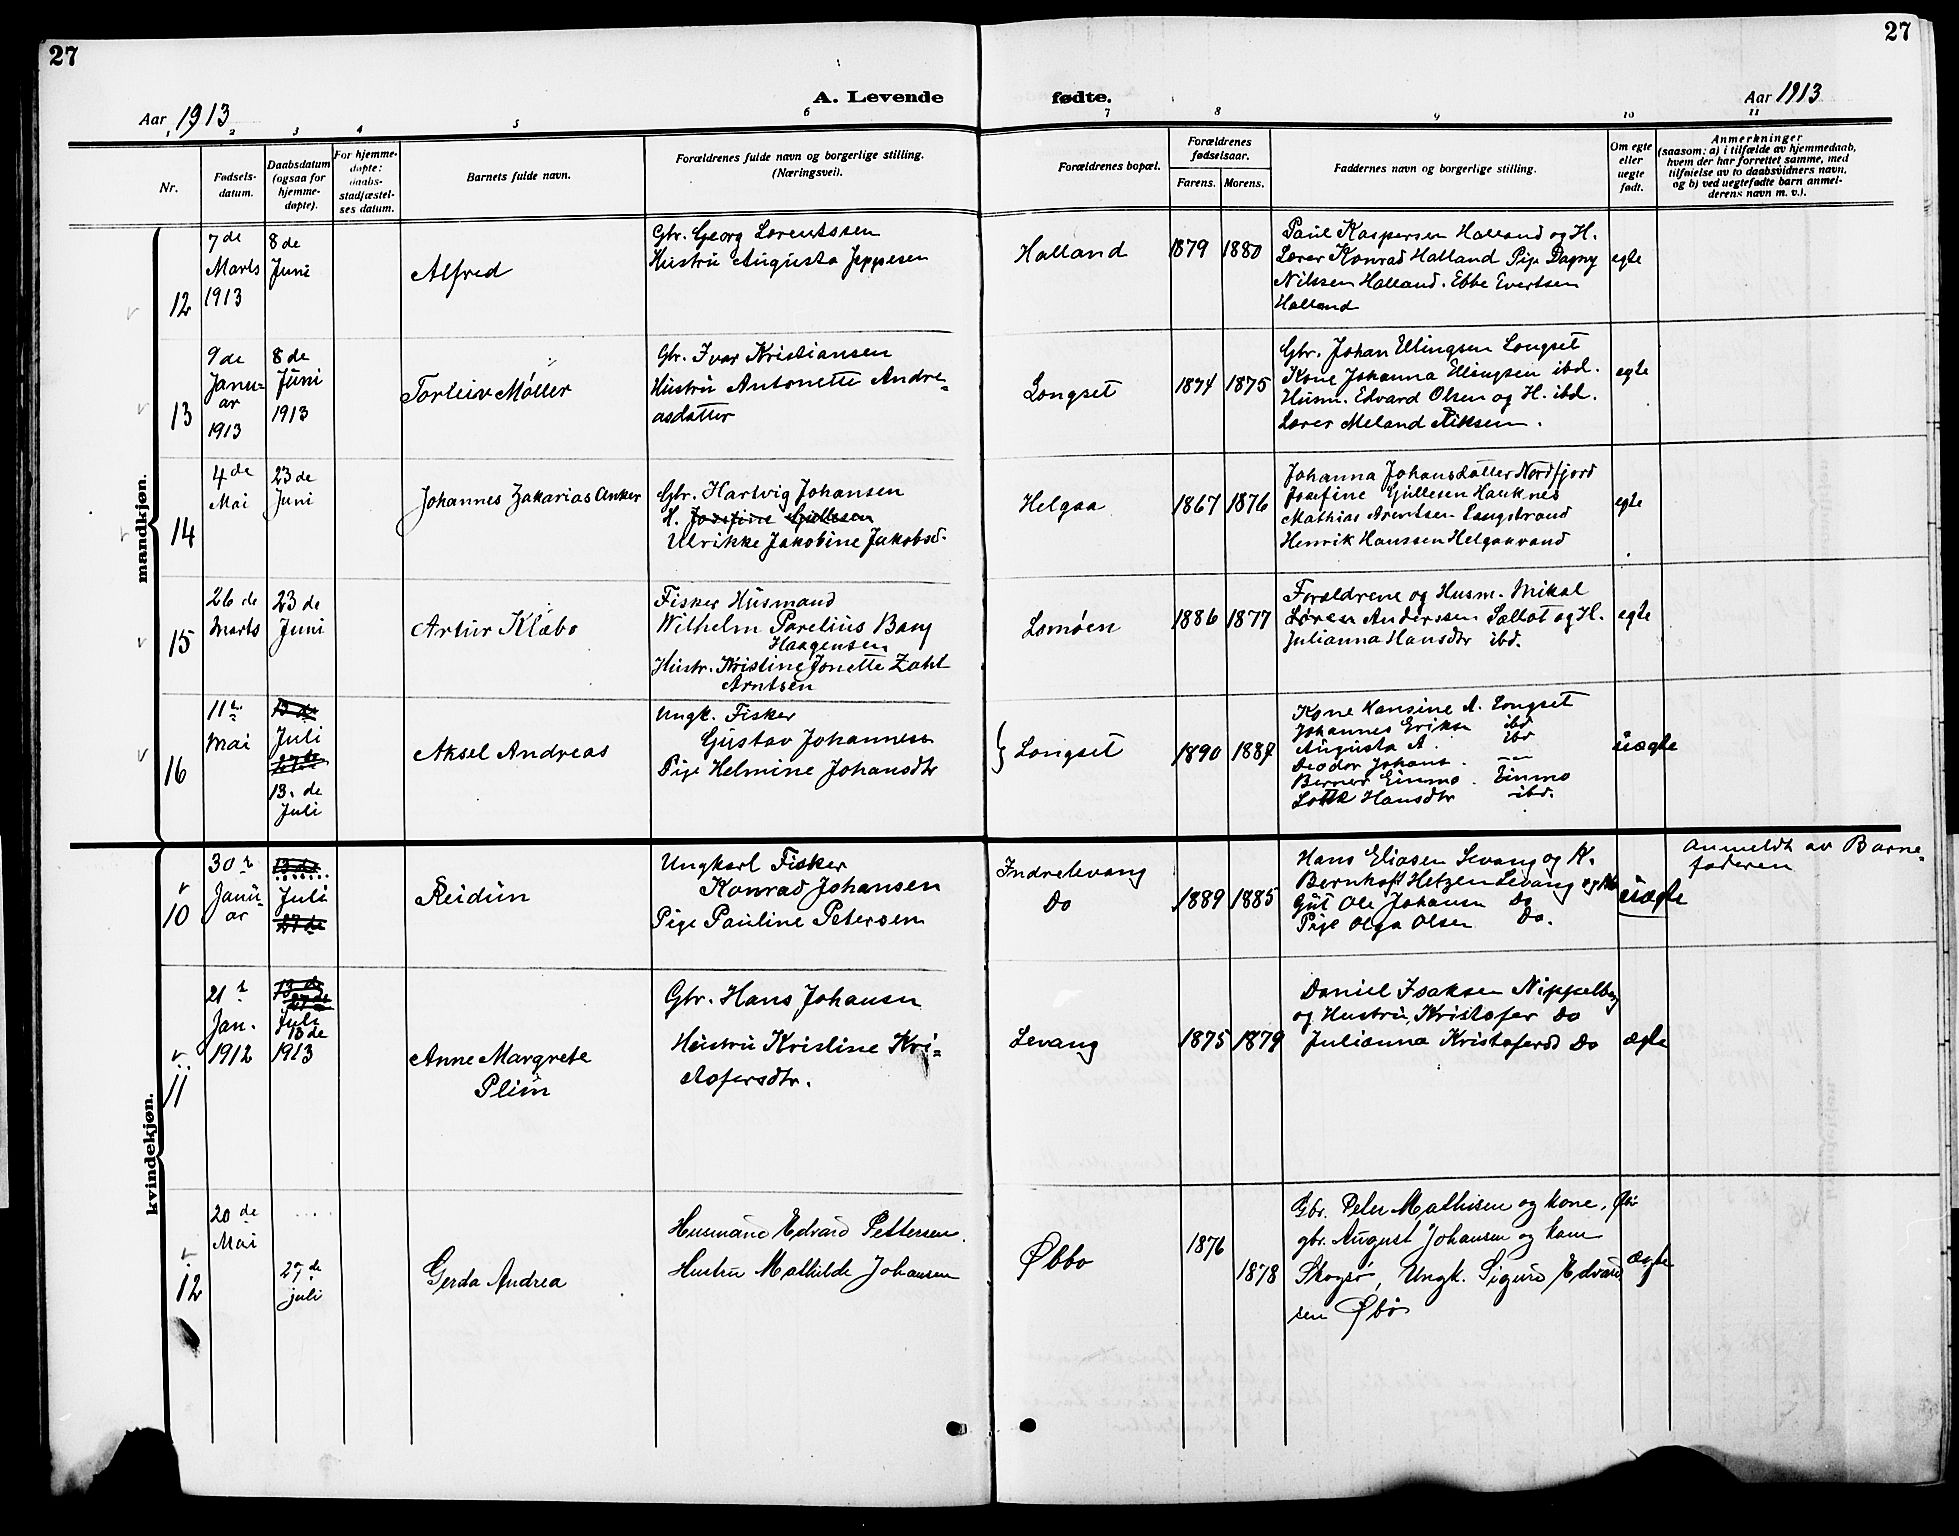 27
27
Aar 1913
A. Levende fødte.
Aar 1913
1 2 3 4 5 6 7 8 9 10 11
Nr.
Fødsels-
datum.
Daabsdatum
(ogsaa for
hjemme-
døpte).
For hjemme-
døpte:
daabs-
stadfæstel-
ses datum.
Barnets fulde navn.
Forældrenes fulde navn og borgerlige stilling.
(Næringsvei).
Forældrenes bopæl.
Forældrenes
fødselsaar.
Farens. Morens.
Faddernes navn og borgerlige stilling.
Om egte
eller
uegte
født.
Anmerkninger
(saasom: a) i tilfælde av hjemmedaab,
hvem der har forrettet samme, med
tilføielse av to daabsvidners navn,
og b) ved uegtefødte barn anmel-
derens navn m. v.).
mandkjøn.
12
7 de
Marts
1913
8 de
Juni
Alfred
Gbr. Georg Lorentssen
Hustru Augusta Jeppesen
Halland
1879 1880
Paul Kaspersen Halland og H.
Lærer Konrad Halland Pige Dagny
Nilssen Halland. Ebbe Evertsen
Halland
egte
13
9 de
Janu-
ar
1913
8 de
Juni
1913
Torleiv Møller
Gbr. Ivar Kristiansen
Hustru Antonette Andre-
asdatter
Longset
1874 1875
Gbr. Johan Ellingsen Longset
Kone Johanna Ellingsen ibd.
Husm. Edvard Olsen og H. ibd.
Lærer Meland
egte
14
4 de
Mai
23 de
Juni
Johannes Zakarias Anker
Gbr. Hartvig Johansen
H. Josefine Gullesen
Ulrikke Jakobine Jakobsd.
Helgaa
1867 1876
Johanna Johansdatter Nordfjord
Josefine Gullesen Hauknes
Mathias Arentsen Langstrand
Henrik Hanssen Helgaavand
egte
15
26 de
Marts
23 de
Juni
Artur Klæbo
Fisker Husmand
Wilhelm Parelius Bang
Haagensen
Hustr. Kristine Jonette Zahl
Arntsen
Lomøen
1886 1877
Forældrene og Husm. Mikal
Løren Anderssen Sallot og H.
Julianna Hansdtr ibd.
egte
16
11te
Mai
13 de
Juli
27 de
13. de
Juli
Aksel Andreas
Ungk. Fisker
Gustav Johannesen
Pige Helmine Johansdtr
Longset
1890 1887
Kone Hansine A. Longset
Johannes Eriksn ibd
Augusta A. ibd
Deodor Johans.
Berner Einmo. Einmo
Hansdtr ibd.
uægte
kvindekjøn.
10
30te
Janu-
ar
13 de
Juli
27 de
Reidun
Ungkarl Fisker
Konrad Johansen
Pige Pauline Petersen
Indrelevang
Do
1889 1885
Hans Eliasen Levang og K.
Bernhoft Hetzen Levang og
Gut Ole Johansen Do
Pige Olga Olsen Do.
uægte
Anmeldt av Barne-
faderen
11
21te
Jan.
1912
13 de
27 de
Juli
13 de
1913
Anne Margrete
Plim
Gbr. Hans Johansen
Hustru Kristine Kri-
stofersdtr.
Levang
1875 1879
Daniel Isaksen Nippelberg
og Hustru, Kristofer Do
Julianna Kristofersd Do
ægte
12
20 de
Mai
27 de
juli
Gerda Andrea
Husmand Edvard Pettersen.
Hustru Mathilde Johansen
Øbbo
1876
1878
Gbr. Peter Mathisen og kone, Øbø
gbr. August Johansen og kone
Skogsø, Ungk. Sigurd Edvard
sen Øbø
ægte